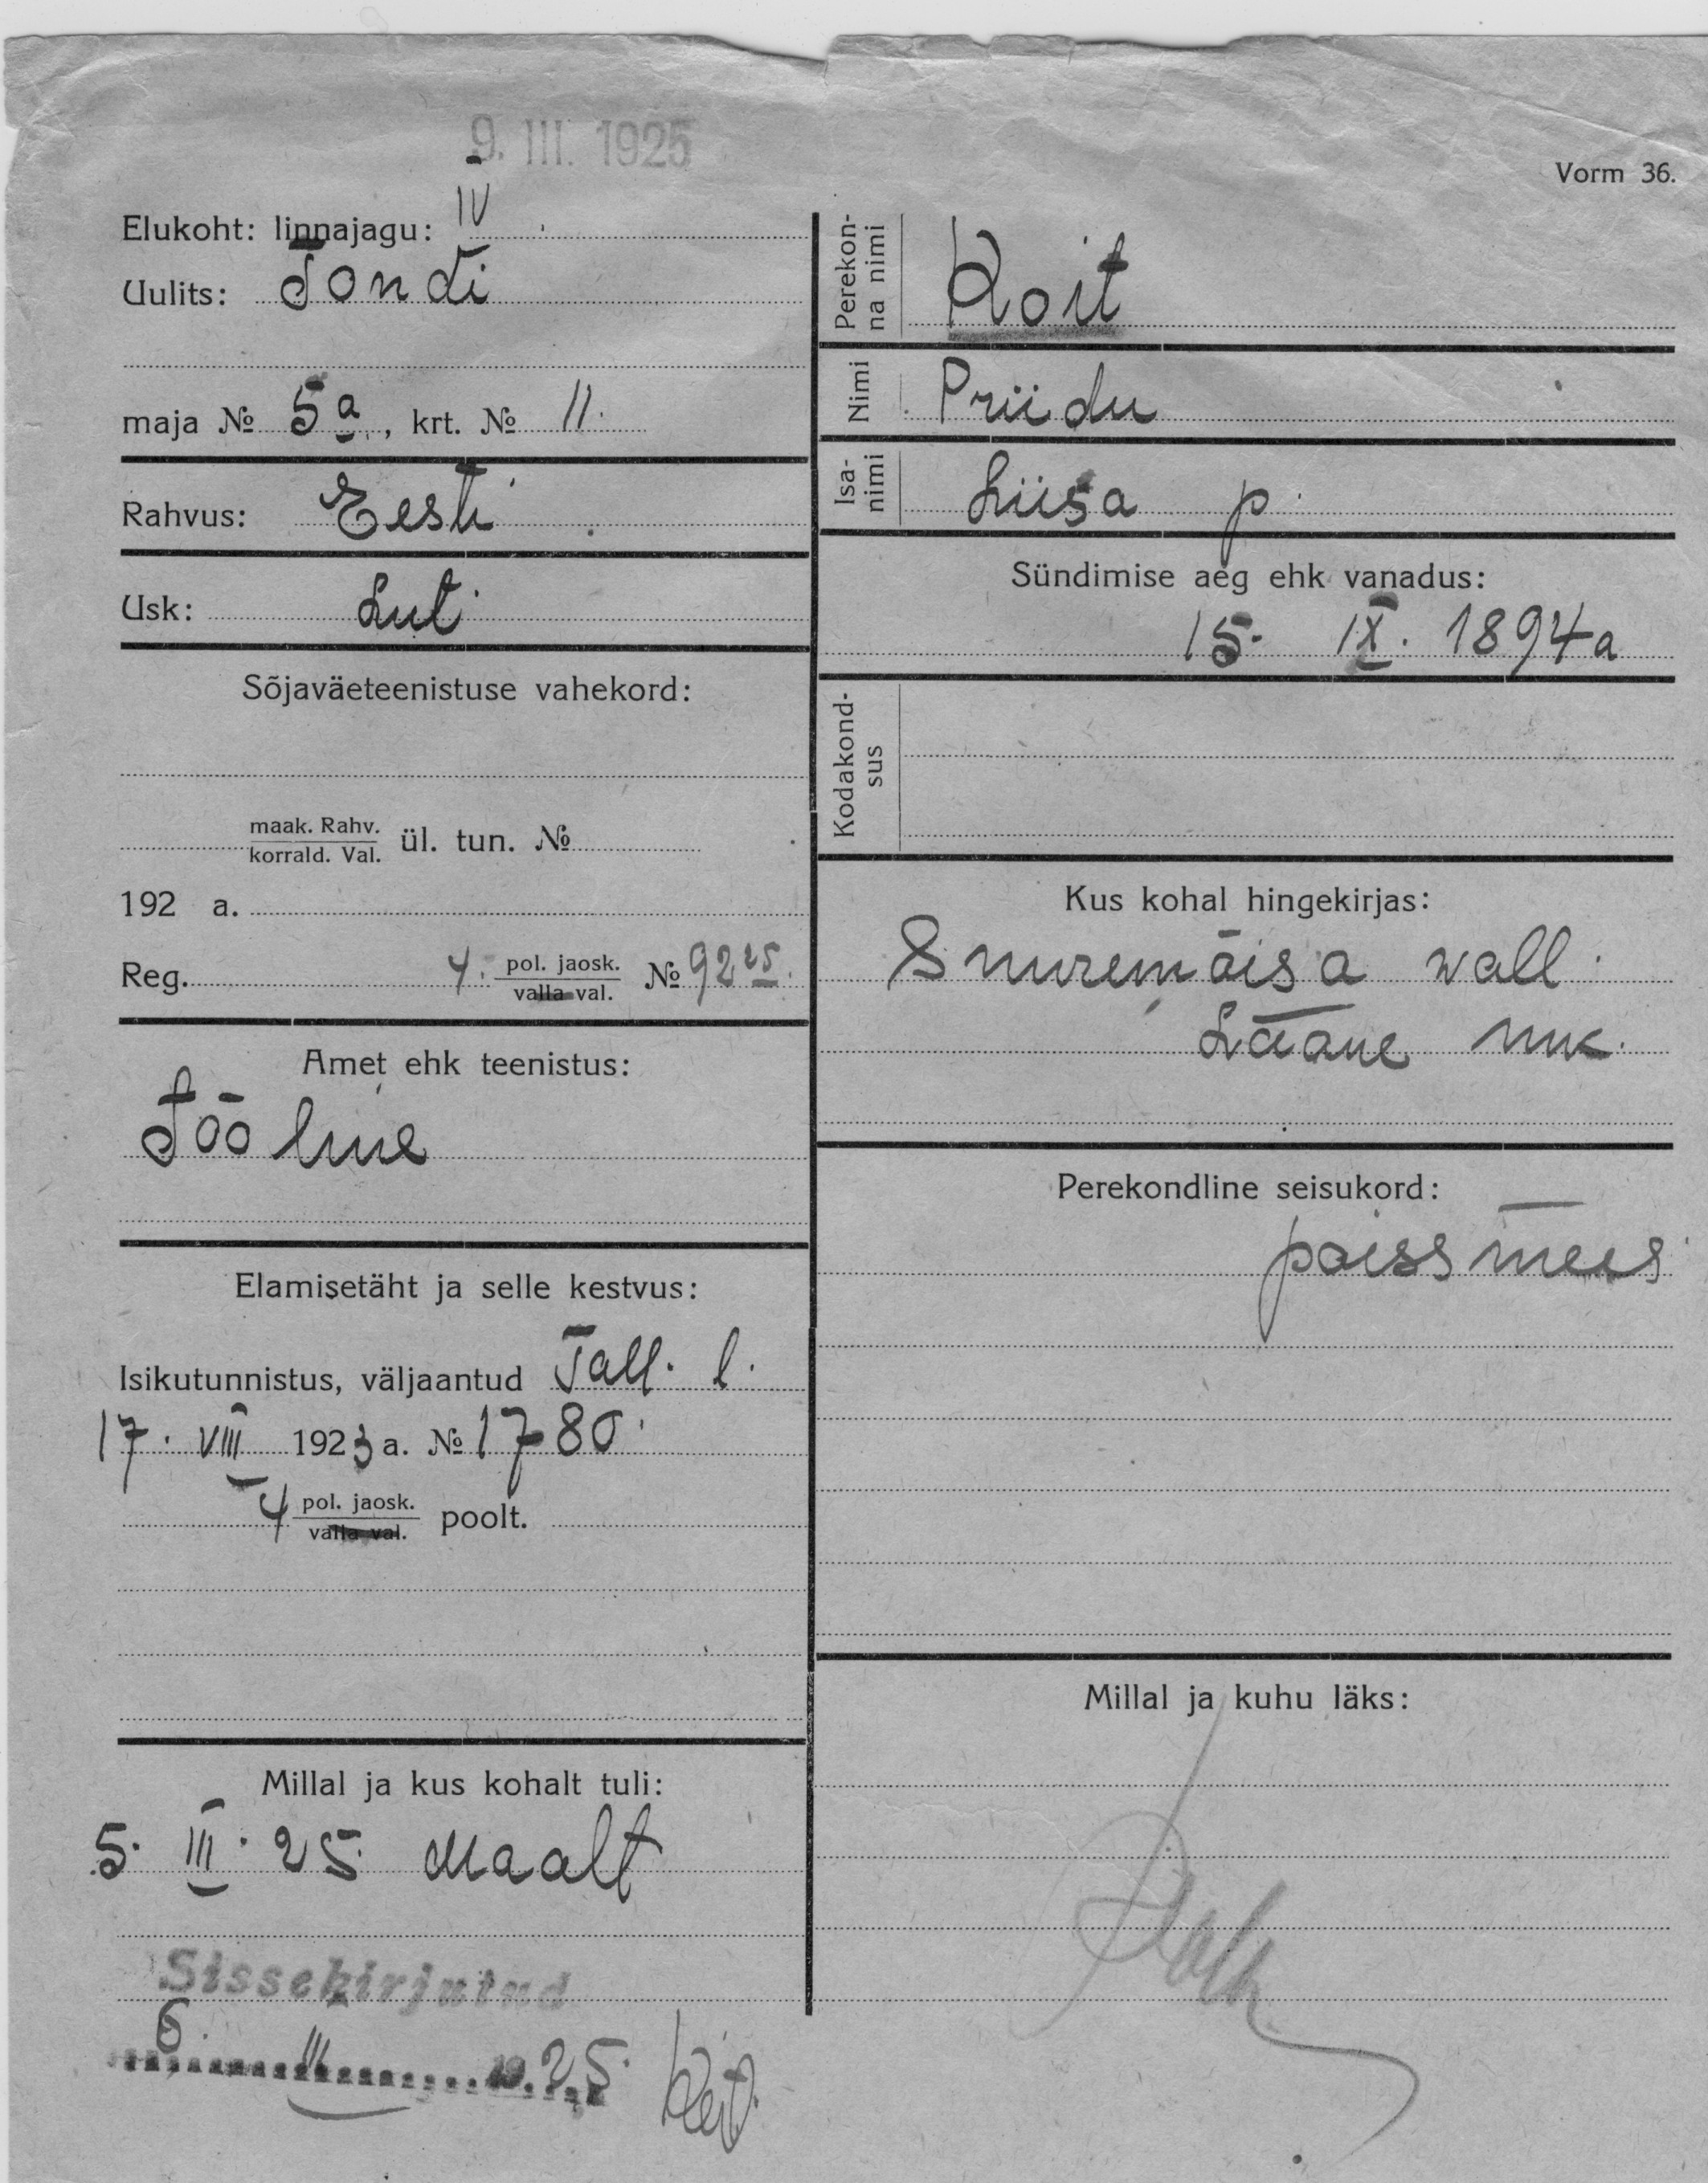 9. III. 1925
Vorm 36.
Elukoht: linnajagu: IV
Uulits: Tondi
maja № 5a, krt. № 11.
Rahvus: Eesti
Usk: Lut.
Sõjaväeteenistuse vahekord:
maak. Rahv.
korrald. Val. ül. tun. №
192 a.
Reg. 4. pol. jaosk.
valla val. № 9225.
Amet ehk teenistus:
Tööline
Elamisetäht ja selle kestvus:
Isikutunnistus, väljaantud Tall. l.
17. VIII 1923 a. № 1780.
4 pol. jaosk.
valla val. poolt.
Millal ja kus kohalt tuli:
5. III. 25. Maalt
Sissekirjutud
6. III 1925.
Perekon-
na nimi Koit
Nimi Priidu
Isa-
nimi Liisa p.
Sündimise aeg ehk vanadus:
15. IX. 1894 a
Kodakond-
sus
Kus kohal hingekirjas:
Suuremõisa wall.
Lääne mk.
Perekondline seisukord:
poissmees
Millal ja kuhu läks: